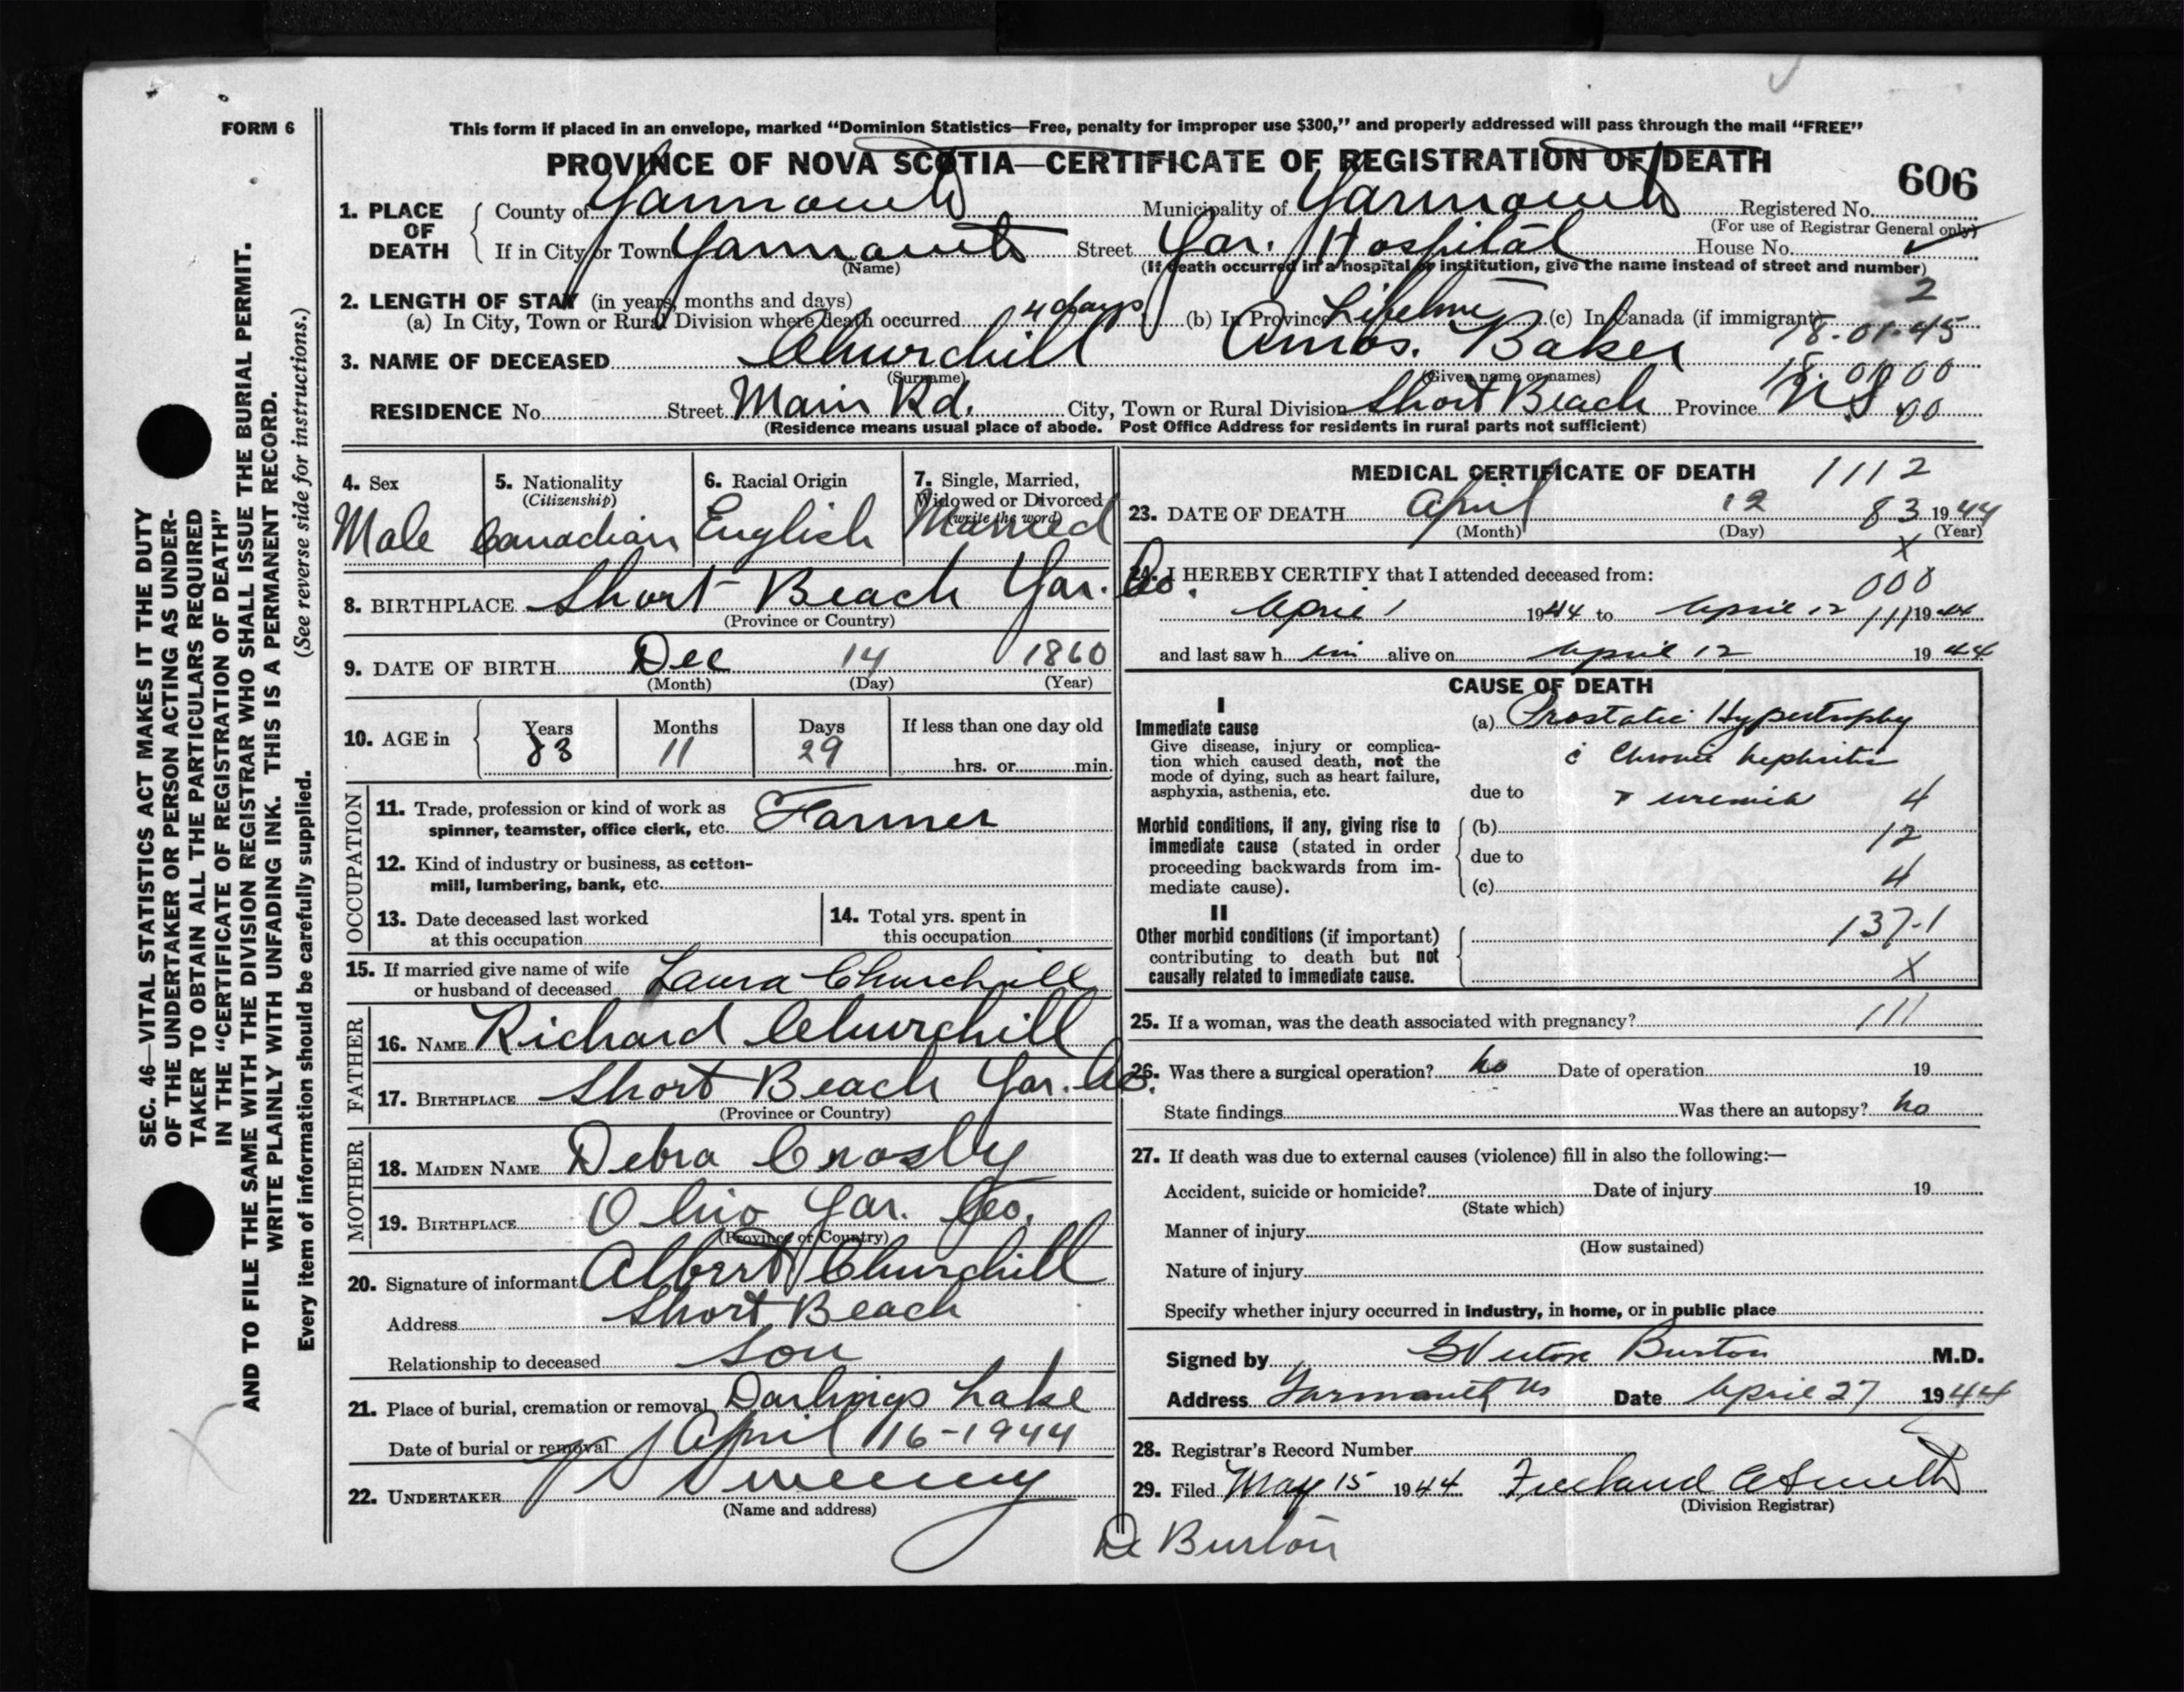 FORM 6
This form if placed in an envelope, marked “Dominion Statistics—Free, penalty for improper use $300,” and properly addressed will pass through the mail “FREE”
PROVINCE OF NOVA SCOTIA—CERTIFICATE OF REGISTRATION OF DEATH
606
1. PLACE OF DEATH
County of Yarmouth Municipality of Yarmouth Registered No.
(For use of Registrar General only)
If in City or Town Yarmouth Street Yar. Hospital House No.
(Name) (If death occurred in a hospital or institution, give the name instead of street and number)
2. LENGTH OF STAY (in years, months and days) 2
(a) In City, Town or Rural Division where death occurred 4 days (b) In Province Lifetime (c) In Canada (if immigrant)
18-01-45
3. NAME OF DECEASED Churchill Amos. Baker
(Surname) (Given name or names) 18 0100
RESIDENCE No. Street Main Rd. City, Town or Rural Division Short Beach Province N.S. 00
(Residence means usual place of abode. Post Office Address for residents in rural parts not sufficient)
4. Sex
Male
5. Nationality
(Citizenship)
Canadian
6. Racial Origin
English
7. Single, Married,
Widowed or Divorced
(write the word)
Married
8. BIRTHPLACE Short Beach Yar. Co.
(Province or Country)
9. DATE OF BIRTH Dec 14 1860
(Month) (Day) (Year)
10. AGE in
Years Months Days If less than one day old
83 11 29 hrs. or min.
OCCUPATION
11. Trade, profession or kind of work as
spinner, teamster, office clerk, etc. Farmer
12. Kind of industry or business, as cotton-
mill, lumbering, bank, etc.
13. Date deceased last worked
at this occupation
14. Total yrs. spent in
this occupation
15. If married give name of wife
or husband of deceased Laura Churchill
FATHER
16. NAME Richard Churchill
17. BIRTHPLACE Short Beach Yar. Co.
(Province or Country)
MOTHER
18. MAIDEN NAME Debra Crosby
19. BIRTHPLACE Ohio Yar. Co.
(Province or Country)
20. Signature of informant Albert Churchill
Address Short Beach
Relationship to deceased Son
21. Place of burial, cremation or removal Darlings Lake
Date of burial or removal April 16-1944
22. UNDERTAKER Sweeny
(Name and address)
MEDICAL CERTIFICATE OF DEATH 1112
23. DATE OF DEATH April 12 83 1944
(Month) (Day) (Year)
X
24. I HEREBY CERTIFY that I attended deceased from:
000
April 1 1944 to April 12 111 1944
and last saw him alive on April 12 1944
CAUSE OF DEATH
I
Immediate cause
Give disease, injury or complica-
tion which caused death, not the
mode of dying, such as heart failure,
asphyxia, asthenia, etc.
(a) Prostatic Hypertrophy
c̄ Chronic nephritis
due to + uremia 4
Morbid conditions, if any, giving rise to
immediate cause (stated in order
proceeding backwards from im-
mediate cause).
(b) 12
due to
(c) 4
II
Other morbid conditions (if important)
contributing to death but not
causally related to immediate cause.
137-1
X
25. If a woman, was the death associated with pregnancy? 111
26. Was there a surgical operation? no Date of operation 19
State findings Was there an autopsy? no
27. If death was due to external causes (violence) fill in also the following:—
Accident, suicide or homicide? Date of injury 19
(State which)
Manner of injury
(How sustained)
Nature of injury
Specify whether injury occurred in industry, in home, or in public place
Signed by Burton M.D.
Address Yarmouth NS Date April 27 1944
28. Registrar's Record Number
29. Filed May 15 1944 Freeland A Smith
(Division Registrar)
Dr Burton
SEC. 46—VITAL STATISTICS ACT MAKES IT THE DUTY
OF THE UNDERTAKER OR PERSON ACTING AS UNDER-
TAKER TO OBTAIN ALL THE PARTICULARS REQUIRED
IN THE “CERTIFICATE OF REGISTRATION OF DEATH”
AND TO FILE THE SAME WITH THE DIVISION REGISTRAR WHO SHALL ISSUE THE BURIAL PERMIT.
WRITE PLAINLY WITH UNFADING INK. THIS IS A PERMANENT RECORD.
Every item of information should be carefully supplied. (See reverse side for instructions.)